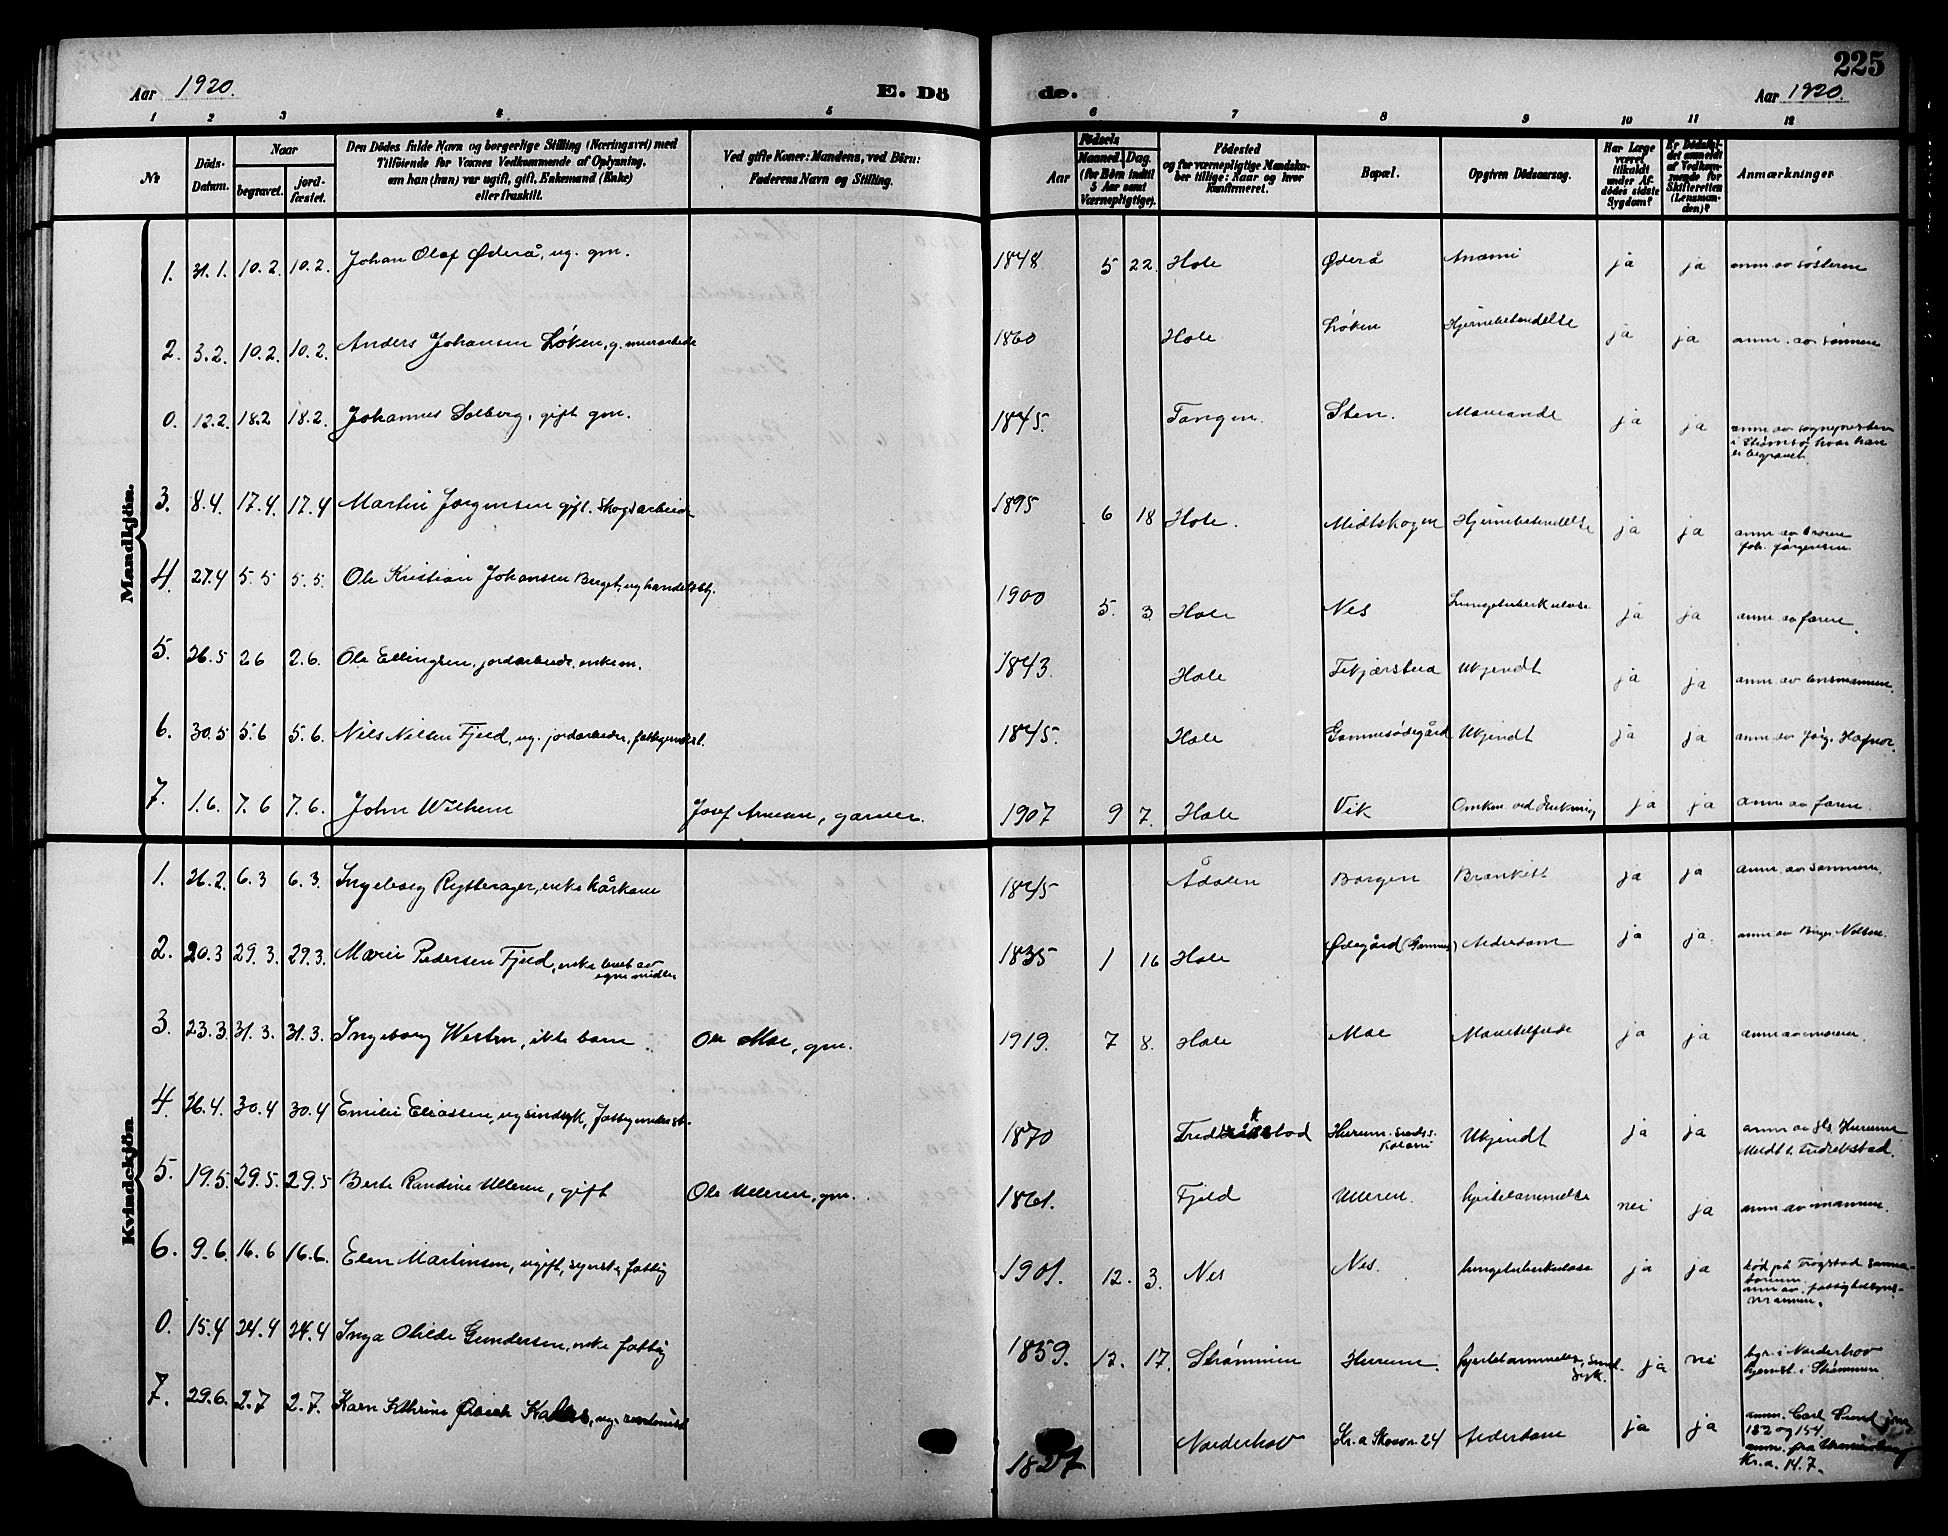 225
Aar 1920. E. Dö de. Aar 1920.
1 2 3 4 5 6 7 8 9 10 11 12
№
Döds-Datum.
Naar
begravet.
jord-fæstet.
Den Dödes fulde Navn og borgerlige Stilling (Næringsvei) med
Tilföiende for Voxnes Vedkommende af Oplysning,
om han (hun) var ugift, gift, Enkemand (Enke)
eller fraskilt.
Ved gifte Koner: Mandens, ved Börn:
Faderens Navn og Stilling.
Födsels
Aar
Maaned. Dag.
(for Börn indtil
5 Aar samt
Værnepligtige).
Födested
og for værnepligtige Mandska-
ber tillige: Naar og hvor
Konfirmeret.
Bopæl.
Opgiven Dödsaarsag.
Har Læge
været
tilkaldt
under Af-
dödes sidste
Sygdom?
Er Dödsfal-
det anmeldt
af Vedkom-
mende for
Skifteretten
(Lensman-
den)?
Anmærkninger
Mandkjön.
1. 31.1. 10.2. 10.2. Johan Olaf Øderå, ug. gm. 1848 5 22. Hole Øderå Anæmi ja ja anm. av søsteren
2. 3.2. 10.2. 10.2. Anders Johansen Løken, g. murarbeide 1860 Hole Løken Hjernebetændelse ja ja anm. av sønnen
0. 12.2. 18.2 18.2. Johannes Solberg, gift gm. 1845. Tangen. Sten. ja ja anm av sognepresten
i Strømsø, hvor han
er begravet.
3. 8.4. 17.4. 17.4 Martin Jørgensen gift. Skogsarbeid 1895 6 18 Hole. Midtskogen Hjernebetændelse ja ja anm av broren
Joh. Jørgensen.
4. 27.4 5.5 5.5. Ole Kristian Johansen Berget, ug handelsbtj. 1900 5. 3 Hole Nes Lungetuberkulose ja ja anm av faren.
5. 26.5 2.6 2.6. Ole Ellingsen, jordarbeid., enkem. 1843. Hole Ukjendt ja ja anm av lensmannen.
6. 30.5 5.6 5.6. Nils Nilsen Fjeld, ug. jordarbeider, fattigunderst. 1845. Hole Gommesødegård Ukjendt ja ja anm av Jörg. Hafnor.
7. 1.6. 7.6 7.6. John Wilhem Josef Arnesen, garver. 1907 9 7. Hole Vik Omkom ved drukning ja ja anm av faren.
Kvindekjön
1. 26.2. 6.3 6.3. Ingeborg Rytterager, enke kårkone 1845 Ådalen Borgen Bronkitt ja ja anm. av sønnen.
2. 20.3 29.3. 29.3. Marie Pedersen Fjeld, enke levet av
egne midler 1835 1 16 Hole Ødegård (Gommes) Alderdom ja ja. anm av Birger Nilsen.
3. 23.3. 31.3. 31.3. Ingeborg Westen, ikke barn Ole Moe, gm. 1919. 7 8. Hole Moe ja ja anm av moren.
4. 26.4. 30.4 30.4 Emilie Eliassen, ug sindsyk, fattigunderst. 1870 Fredrikstad Hurum. Sinds.
Koloni Ukjendt ja ja anm av
Meldt t. Fredrikstad.
5. 19.5. 29.5. 29.5 Berte Randine Ulleren, gift Ole Ulleren, gm. 1861. Fjeld Ulleren. hjertelammelse nei ja anm av mannen.
6. 9.6. 16.6 16.6. Elen Martinsen, ugift, syerske, fattig 1901. 12. 3. Nes Nes. lungetuberkulose ja ja død på Trøgstad sanna-
torium.
anm av fattigtilsyns-
mannen.
0. 15.4 24.4 24.4 Inga Otilde Gundersen, enke fattig 1859. 12. 17. Strømmen Hurum. hjertelammelse, sind-
syk. ja nei bgr. i Norderhov
hjemst. i Strømmen.
7. 29.6. 2.7 2.7. Karn Kthrine 1827 Norderhov Kr.a Skovv. 24 Alderdom ja ja anm. Carl
152 og 154.
anm. fra
Kr.a. 14.7.